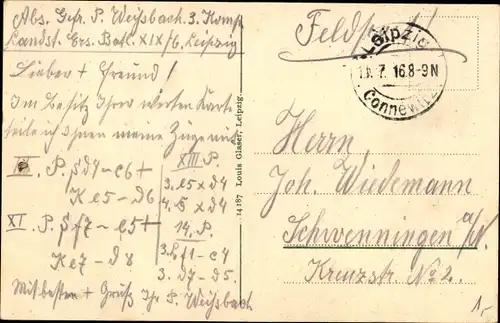 Abs. Gefr. P. Weißbach. 3. Komp.
Landst. Ers. Batl. XIX/6, Leipzig
Feldpost!
Leipzig
7. 16. 8-9 N
Connewitz
Lieber + Freund!
Im Besitz Ihrer werten Karte
teile ich Ihnen meine Züge mit
P. S d4 - c6 +
K e5 - d6
XI P. S f7 - e5 +
K e7 - d8
XIII P.
3. e5 x d4
4. S x d4
14. P.
3. L f1 - c4
3. d7 - d5.
Mit besten + Gruß Ihr P. Weißbach
14187 Louis Glaser, Leipzig.
Herrn,
Joh. Wiedemann
Schwenningen a/N.
Kreuzstr. No 2.
1,-